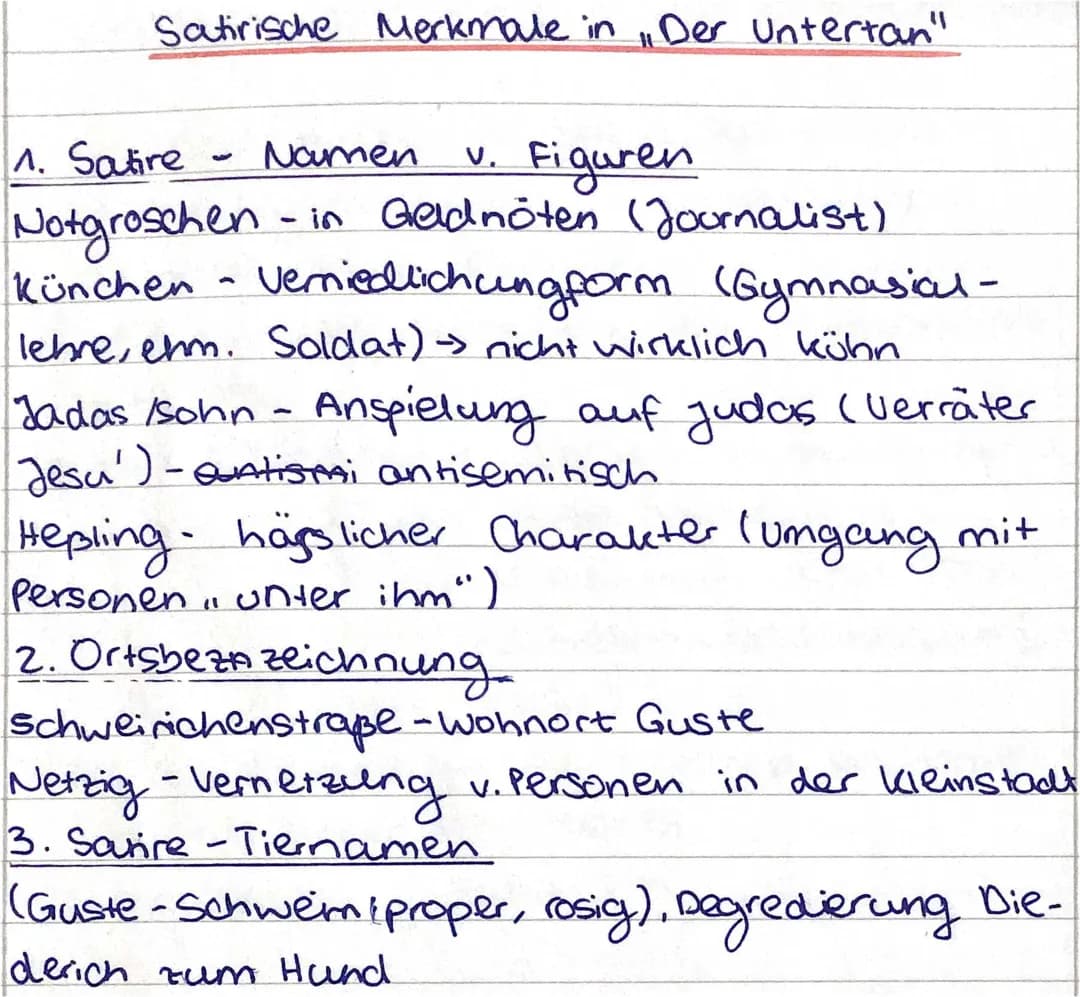 Satirische Merkmale in „Der Untertan"
1. Satire - Namen v. Figuren
Notgroschen - in Geldnöten (Journalist)
Künchen - Verniedlichungform (Gymnasial-
lehre, ehm. Soldat) → nicht wirklich kühn
Jadas /sohn - Anspielung auf Judas (Verräter
Jesu') - antismi antisemitisch
Heßling - hässlicher Charakter (Umgang mit
Personen „unter ihm")
2. Ortsbezeichnung
Schweinichenstraße - Wohnort Guste
Netzig - Vernetzung v. Personen in der Kleinstadt
3. Satire - Tiernamen
(Guste - Schwein (proper, rosig), Degredierung Die-
derich zum Hund